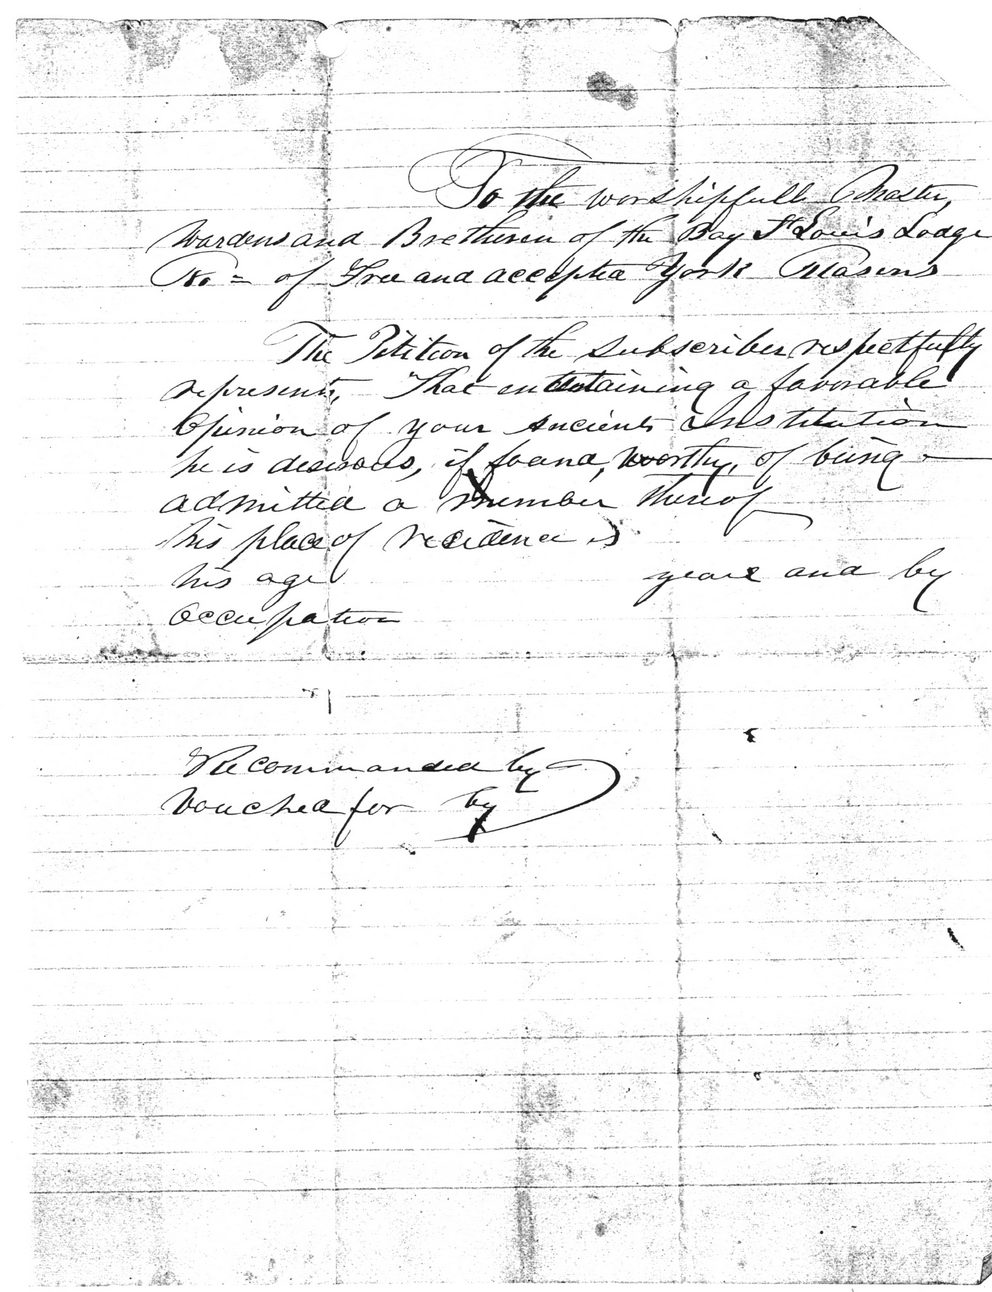 To the worshipfull Master,
Wardens and Bretheren of the Bay St Louis Lodge
No = of Free and accepted York Masons
The Petition of the Subscriber respectfully
represents, That entertaining a favorable
Opinion of your Ancient Institution
he is desirous, if found, worthy, of being
admitted a member thereof
his place of residence is
his age years and by
occupation
Recommanded by
Vouched for by